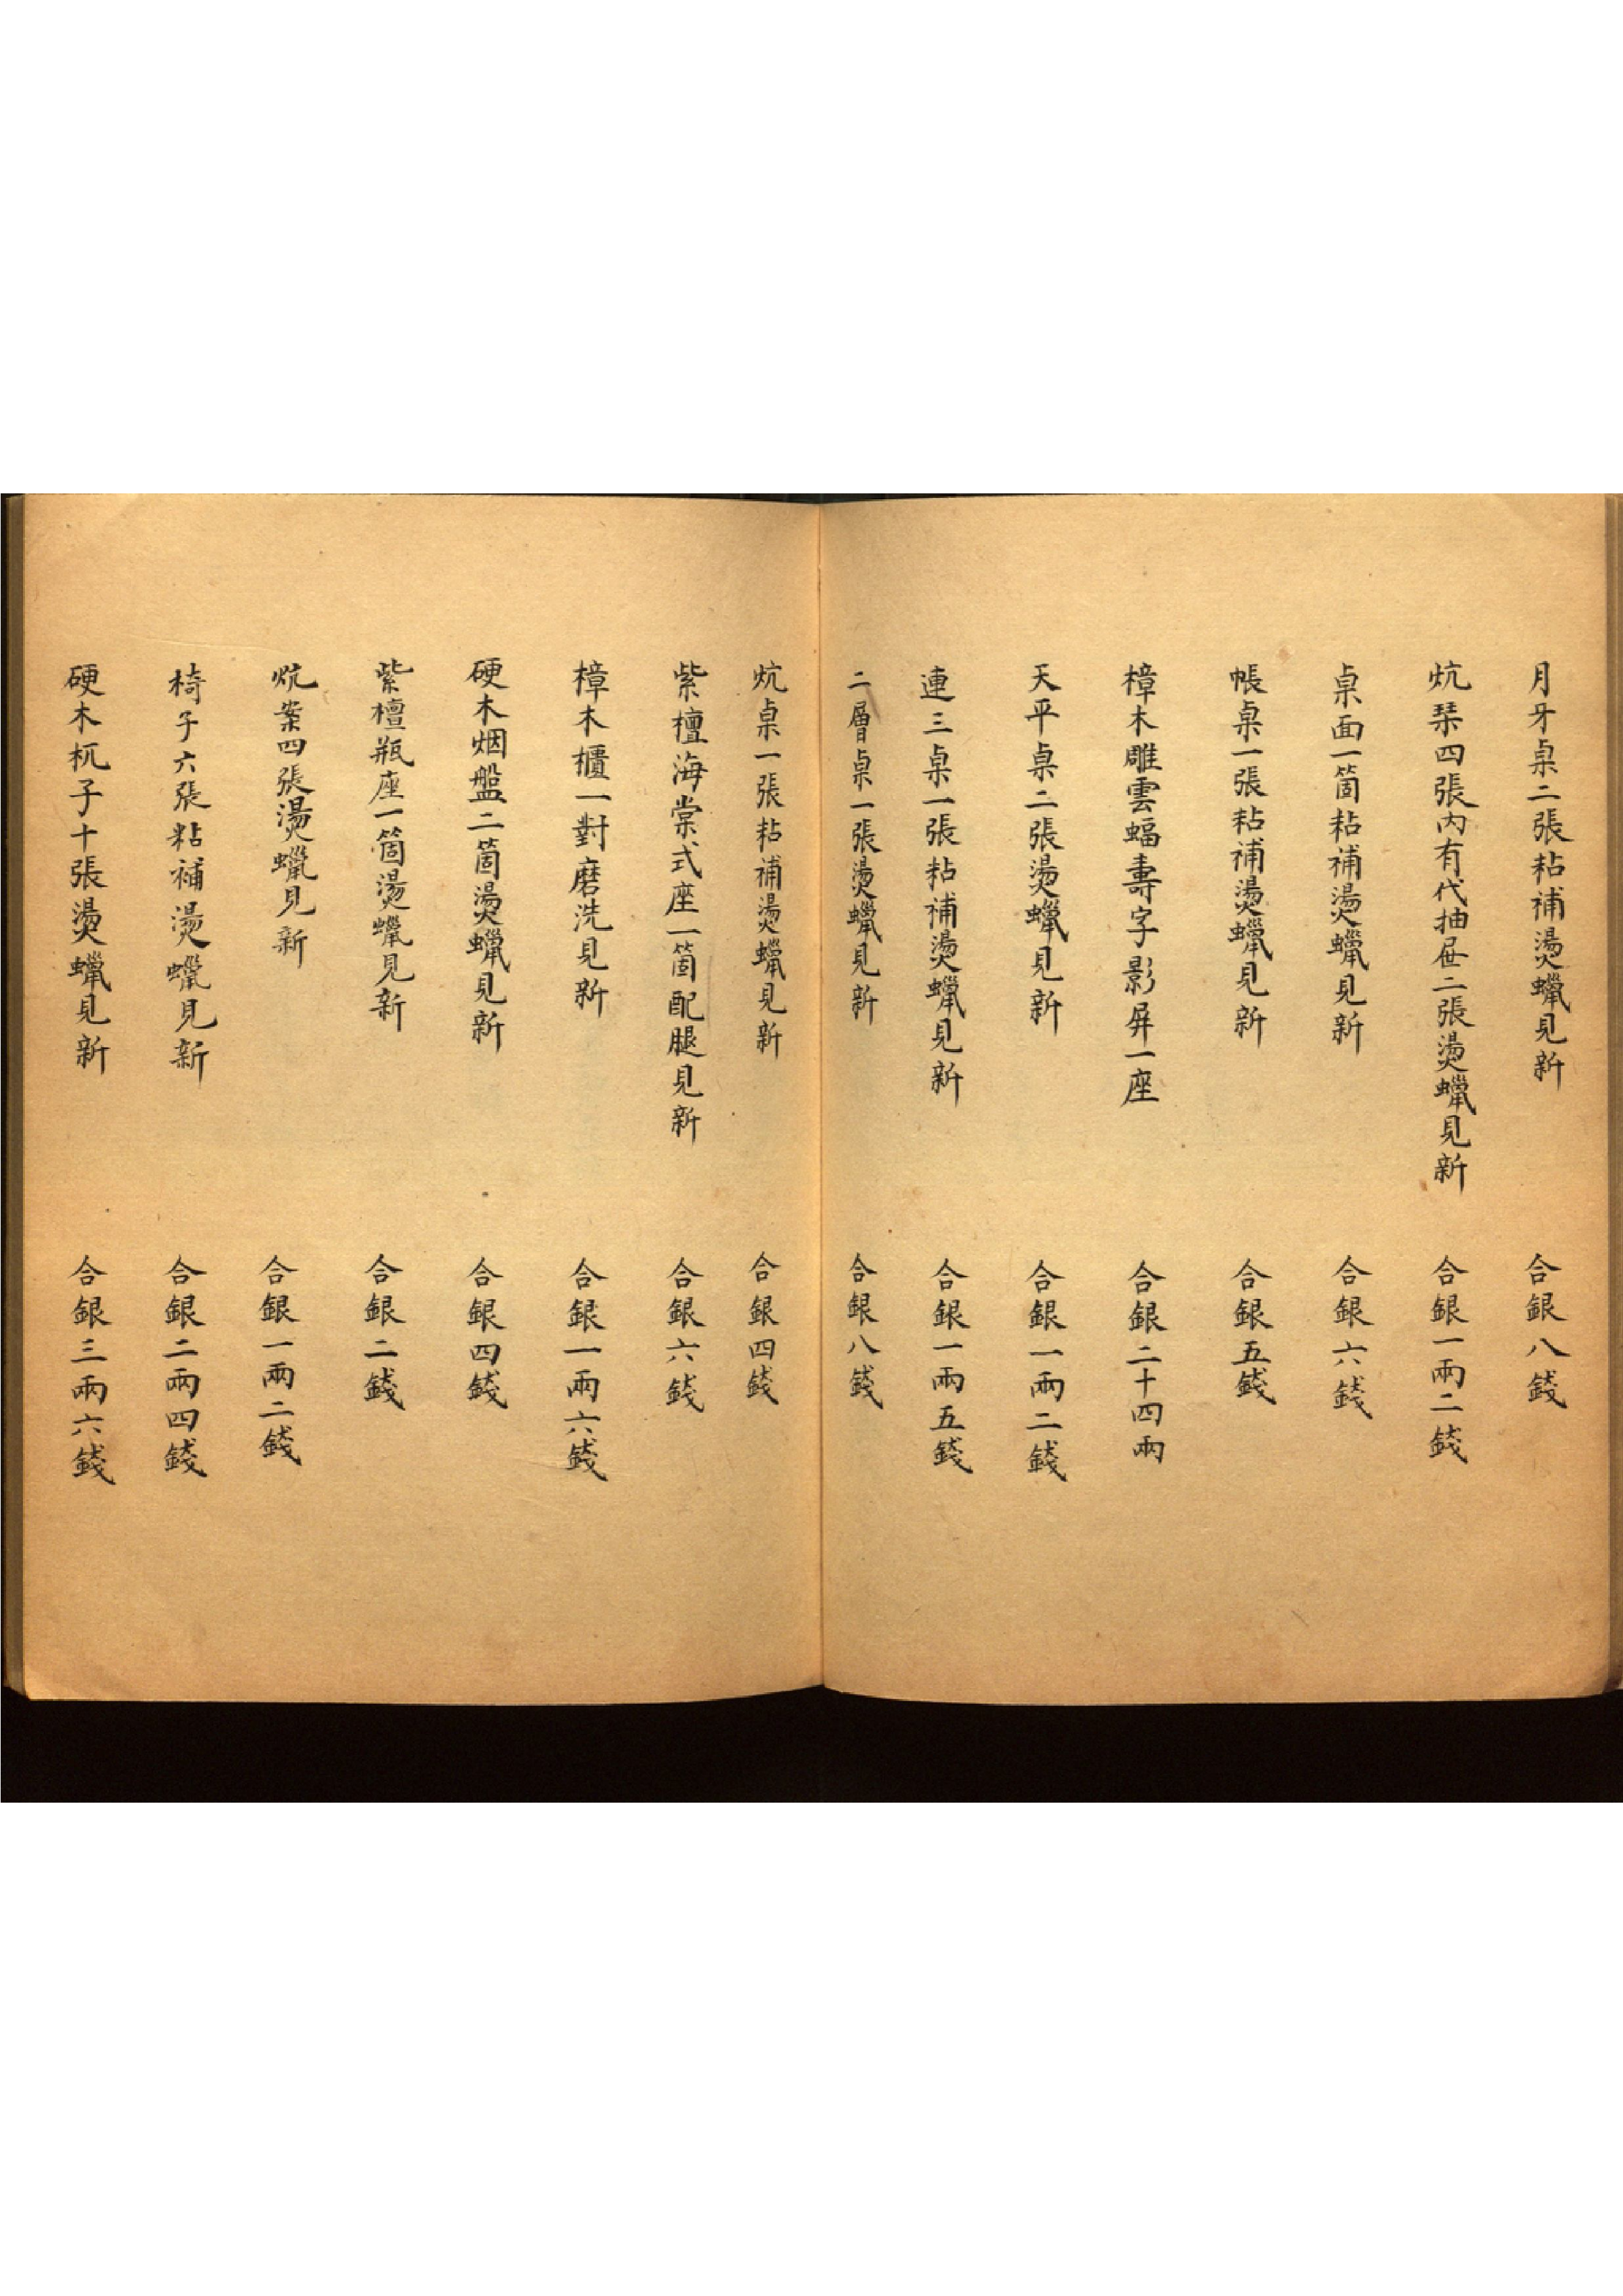 月牙桌二張粘補燙蠟見新 合銀八錢
炕琹四張內有代抽屉二張燙蠟見新 合銀一兩二錢
桌面一箇粘補燙蠟見新 合銀六錢
帳桌一張粘補燙蠟見新 合銀五錢
樟木雕雲蝠壽字影屏一座 合銀二十四兩
天平桌二張燙蠟見新 合銀一兩二錢
連三桌一張粘補燙蠟見新 合銀一兩五錢
二層桌一張燙蠟見新 合銀八錢
炕桌一張粘補燙蠟見新 合銀四錢
紫檀海棠式座一箇配腿見新 合銀六錢
樟木櫃一對磨洗見新 合銀一兩六錢
硬木烟盤二箇燙蠟見新 合銀四錢
紫檀瓶座一箇燙蠟見新 合銀二錢
炕案四張燙蠟見新 合銀一兩二錢
椅子六張粘補燙蠟見新 合銀二兩四錢
硬木杌子十張燙蠟見新 合銀三兩六錢